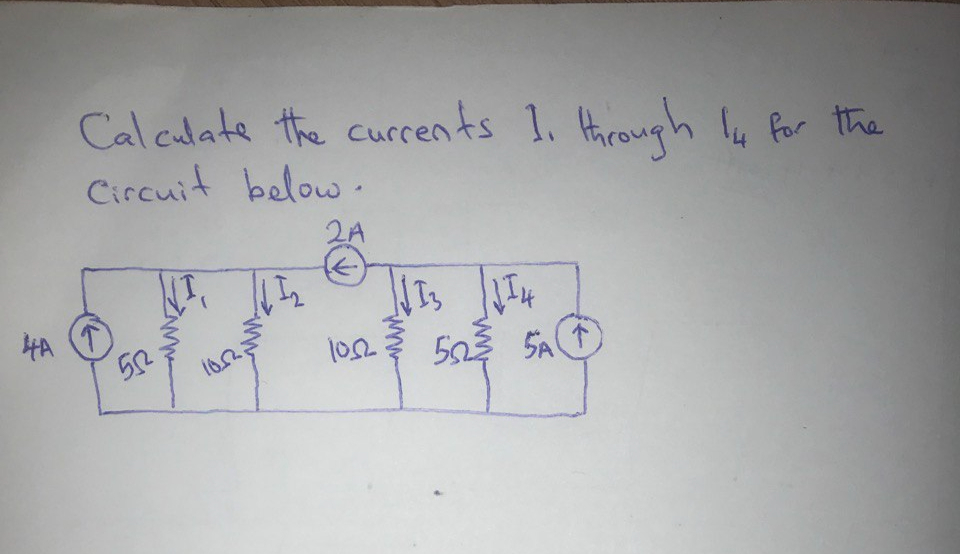 Calculate the currents I₁ through I₄ for the
circuit below.
2A
I₁ I₂ I₃ I₄
4A 5Ω 10Ω 10Ω 5Ω 5A